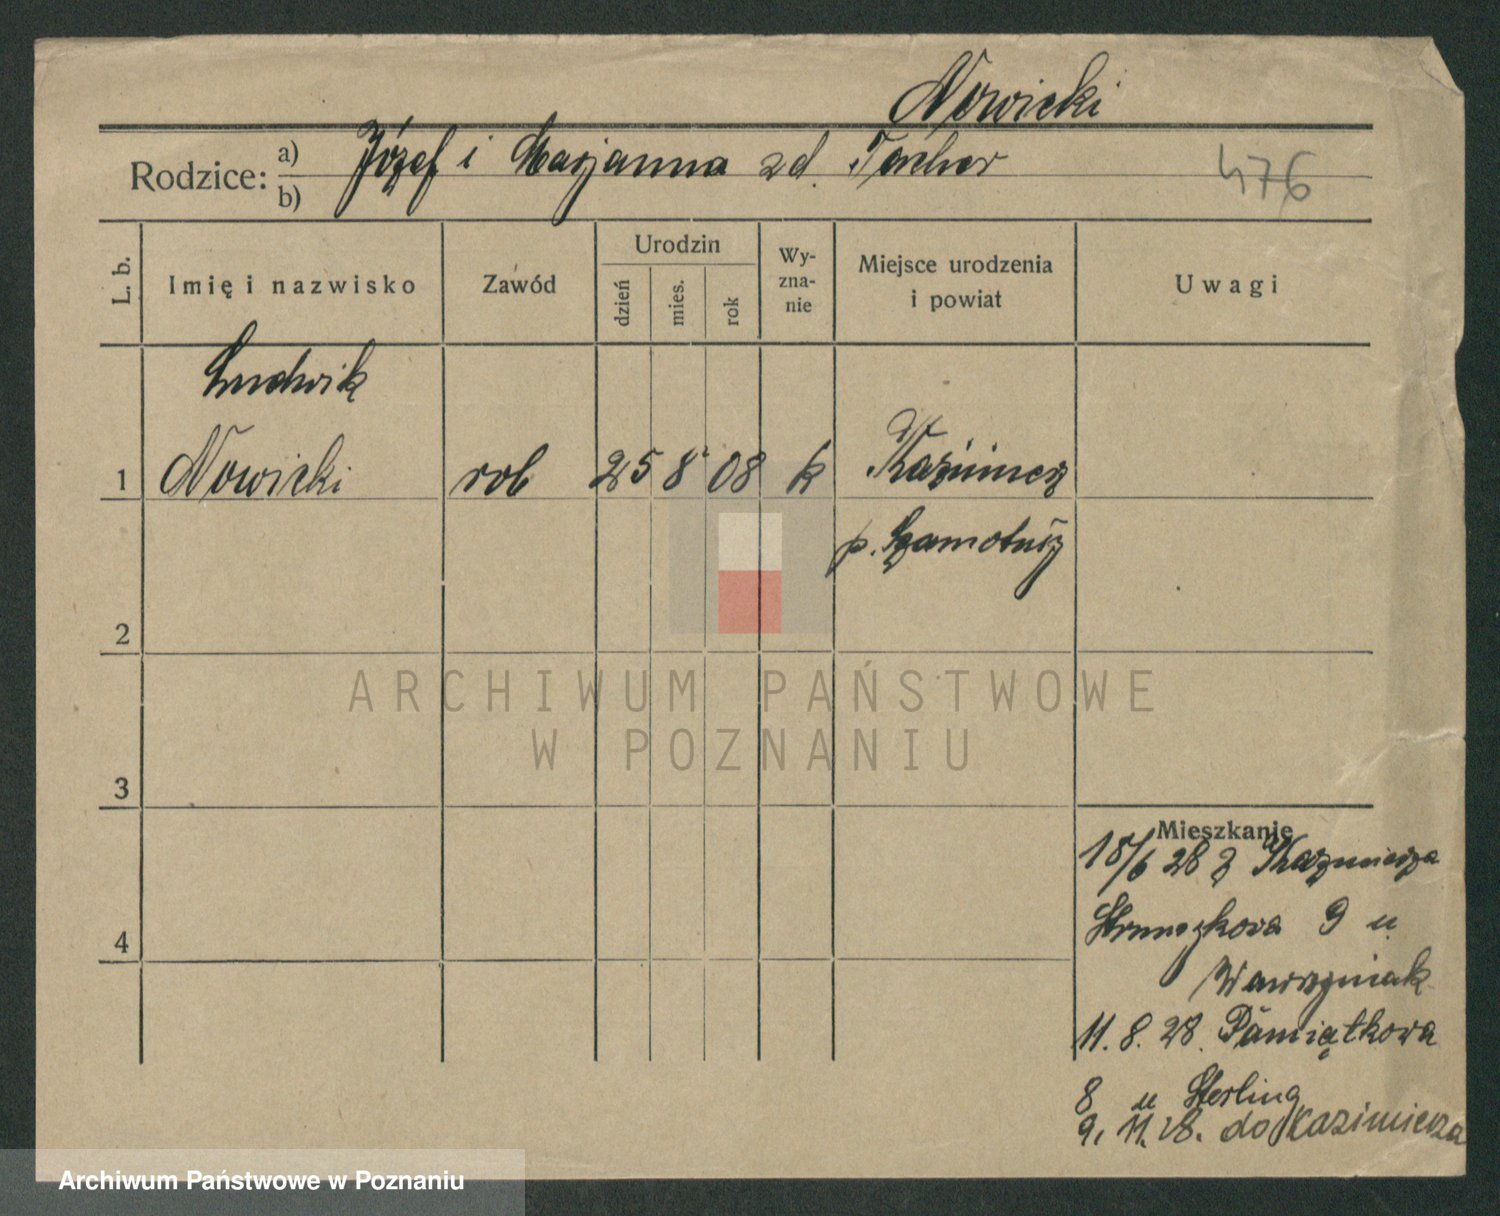 Nowicki
Rodzice: a) Józef i Marjanna zd. Tacher
b)
476
L. b.
Imię i nazwisko
Zawód
Urodzin
dzień
mies.
rok
Wy-
zna-
nie
Miejsce urodzenia
i powiat
Uwagi
Ludwik
1 Nowicki rob 25 8 08 k Kaźimierz
p. Szamotuły
2
ARCHIWUM PAŃSTWOWE
W POZNANIU
3
Mieszkanie
18/6 28 z Kazmierza
9 u
4
Wawrzyniak
11. 8. 28. Pamiątkowa
8 u Sterling
9. 11. 28. do Kazimierza
Archiwum Państwowe w Poznaniu